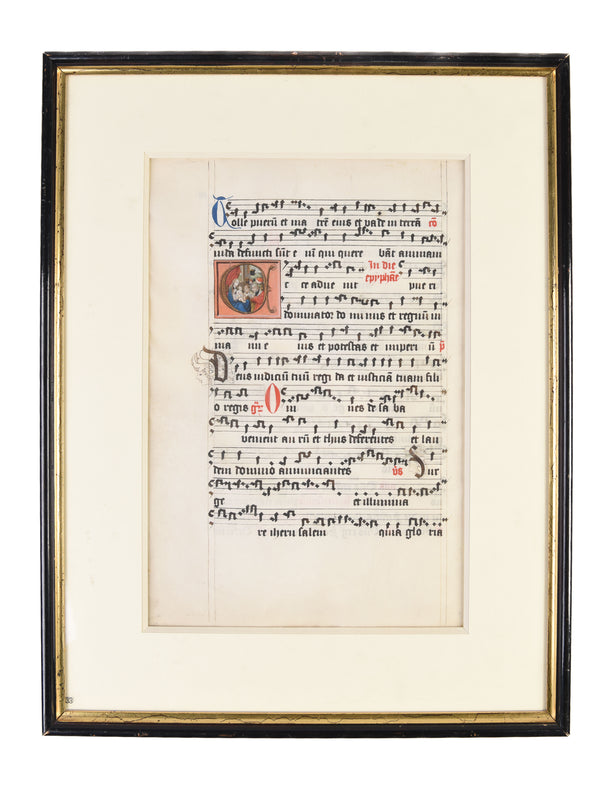 Tolle puerū et ma trē eius et vade in terrā cō
iuda defuncti sūt e nī qui quere bāt animam
In die
epyphāe
E c ce adve nit pue ri
dominator do mi nus et regnū in
ma nu e ius et potestas et imperi ū p̄
Deus iudiciū tuū regi da et iusticiā tuam fili
o regis gr̄ Om nes de sa ba
venient au rū et thus deferentes et lau
dem domino annunciantes v̄s Sur
ge et illumina
re iheru salem quia glo ria
33